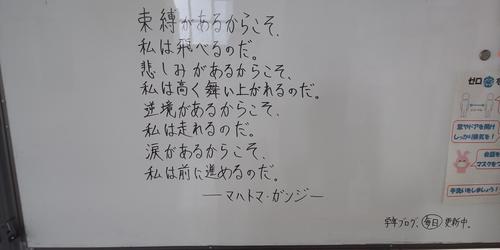 束縛があるからこそ、
私は飛べるのだ。
悲しみがあるからこそ、
私は高く舞い上がれるのだ。
逆境があるからこそ、
私は走れるのだ。
涙があるからこそ、
私は前に進めるのだ。
―マハトマ・ガンジー―
学年ブログ、毎日更新中。
ゼロ
窓やドアを開け
しっかり換気を!
会話
マスクをつ
手洗いをしましょう!